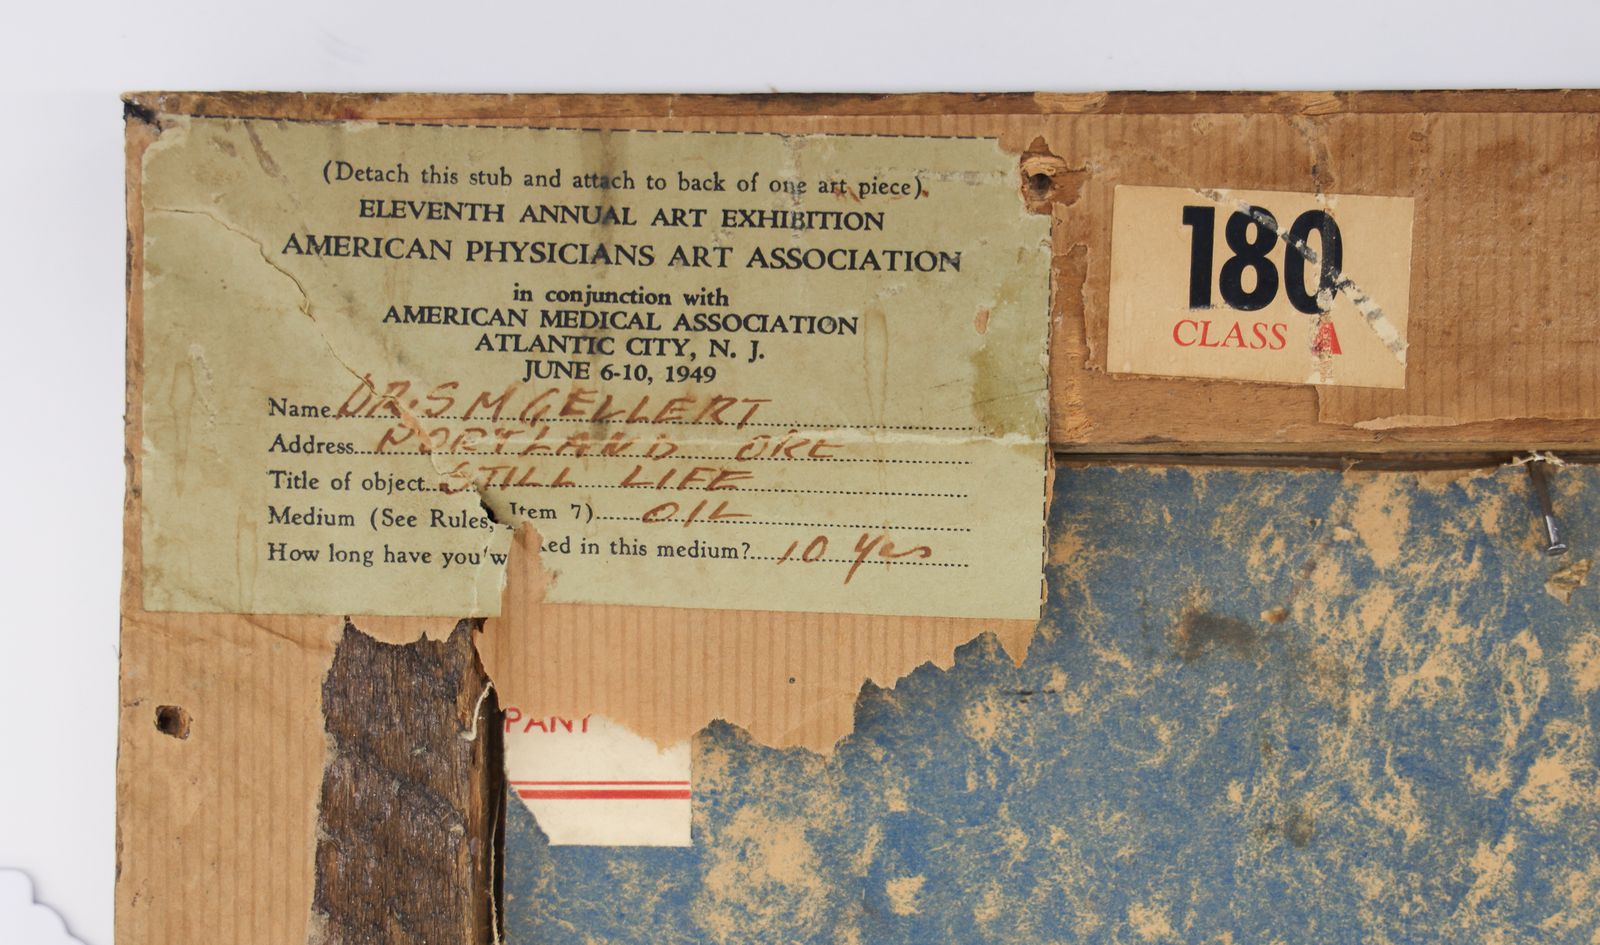 (Detach this stub and attach to back of one art piece).
ELEVENTH ANNUAL ART EXHIBITION
AMERICAN PHYSICIANS ART ASSOCIATION
in conjunction with
AMERICAN MEDICAL ASSOCIATION
ATLANTIC CITY, N. J.
JUNE 6-10, 1949
Name DR. S M GELLERT
Address PORTLAND ORE
Title of object STILL LIFE
Medium (See Rules, Item 7) OIL
How long have you w ked in this medium? 10 yrs
180
CLASS A
PANY